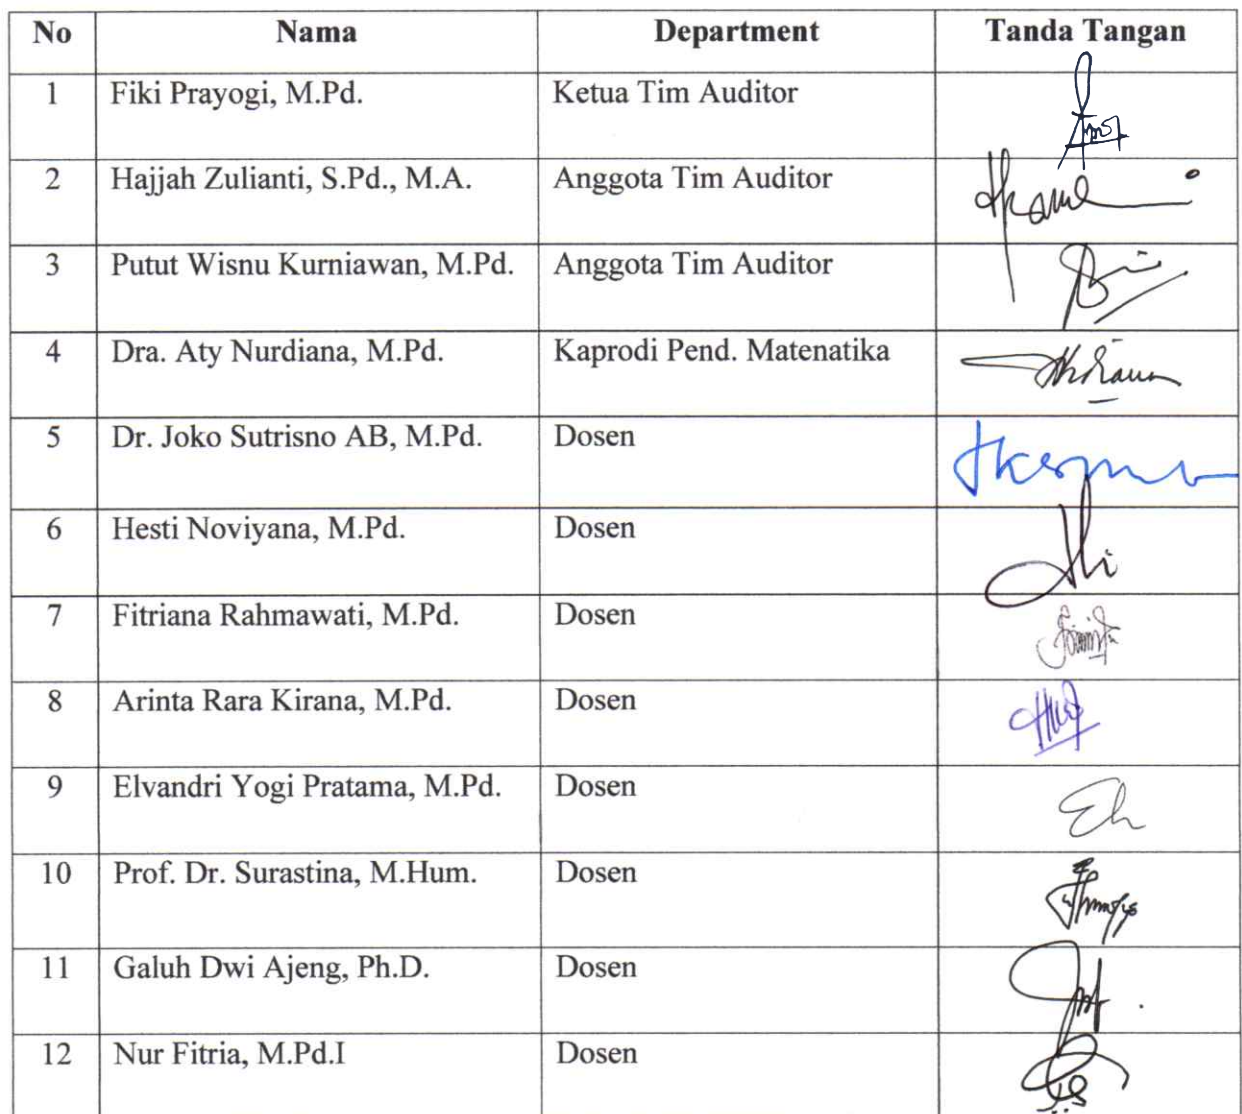 No Nama Department Tanda Tangan
1 Fiki Prayogi, M.Pd. Ketua Tim Auditor
2 Hajjah Zulianti, S.Pd., M.A. Anggota Tim Auditor
3 Putut Wisnu Kurniawan, M.Pd. Anggota Tim Auditor
4 Dra. Aty Nurdiana, M.Pd. Kaprodi Pend. Matenatika
5 Dr. Joko Sutrisno AB, M.Pd. Dosen
6 Hesti Noviyana, M.Pd. Dosen
7 Fitriana Rahmawati, M.Pd. Dosen
8 Arinta Rara Kirana, M.Pd. Dosen
9 Elvandri Yogi Pratama, M.Pd. Dosen
10 Prof. Dr. Surastina, M.Hum. Dosen
11 Galuh Dwi Ajeng, Ph.D. Dosen
12 Nur Fitria, M.Pd.I Dosen